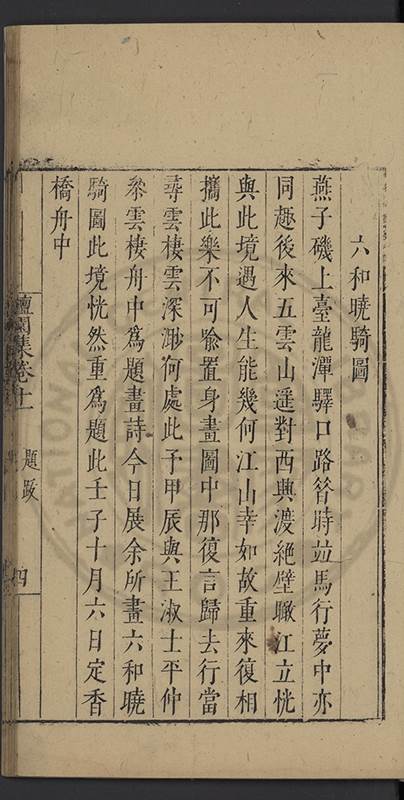 六和曉騎圖
燕子磯上臺龍潭驛口路昝時竝馬行夢中亦
同趣後來五雲山遥對西興渡絕壁瞰江立恍
與此境遇人生能幾何江山幸如故重來復相
攜此樂不可喻置身畫圖中那復言歸去行當
尋雲棲雲深渺何處此予甲辰與王淑士平仲
叅雲棲舟中爲題畫詩今日展余所畫六和曉
騎圖此境恍然重爲題此壬子十月六日定香
橋舟中
檀園集卷十一
題跋
四